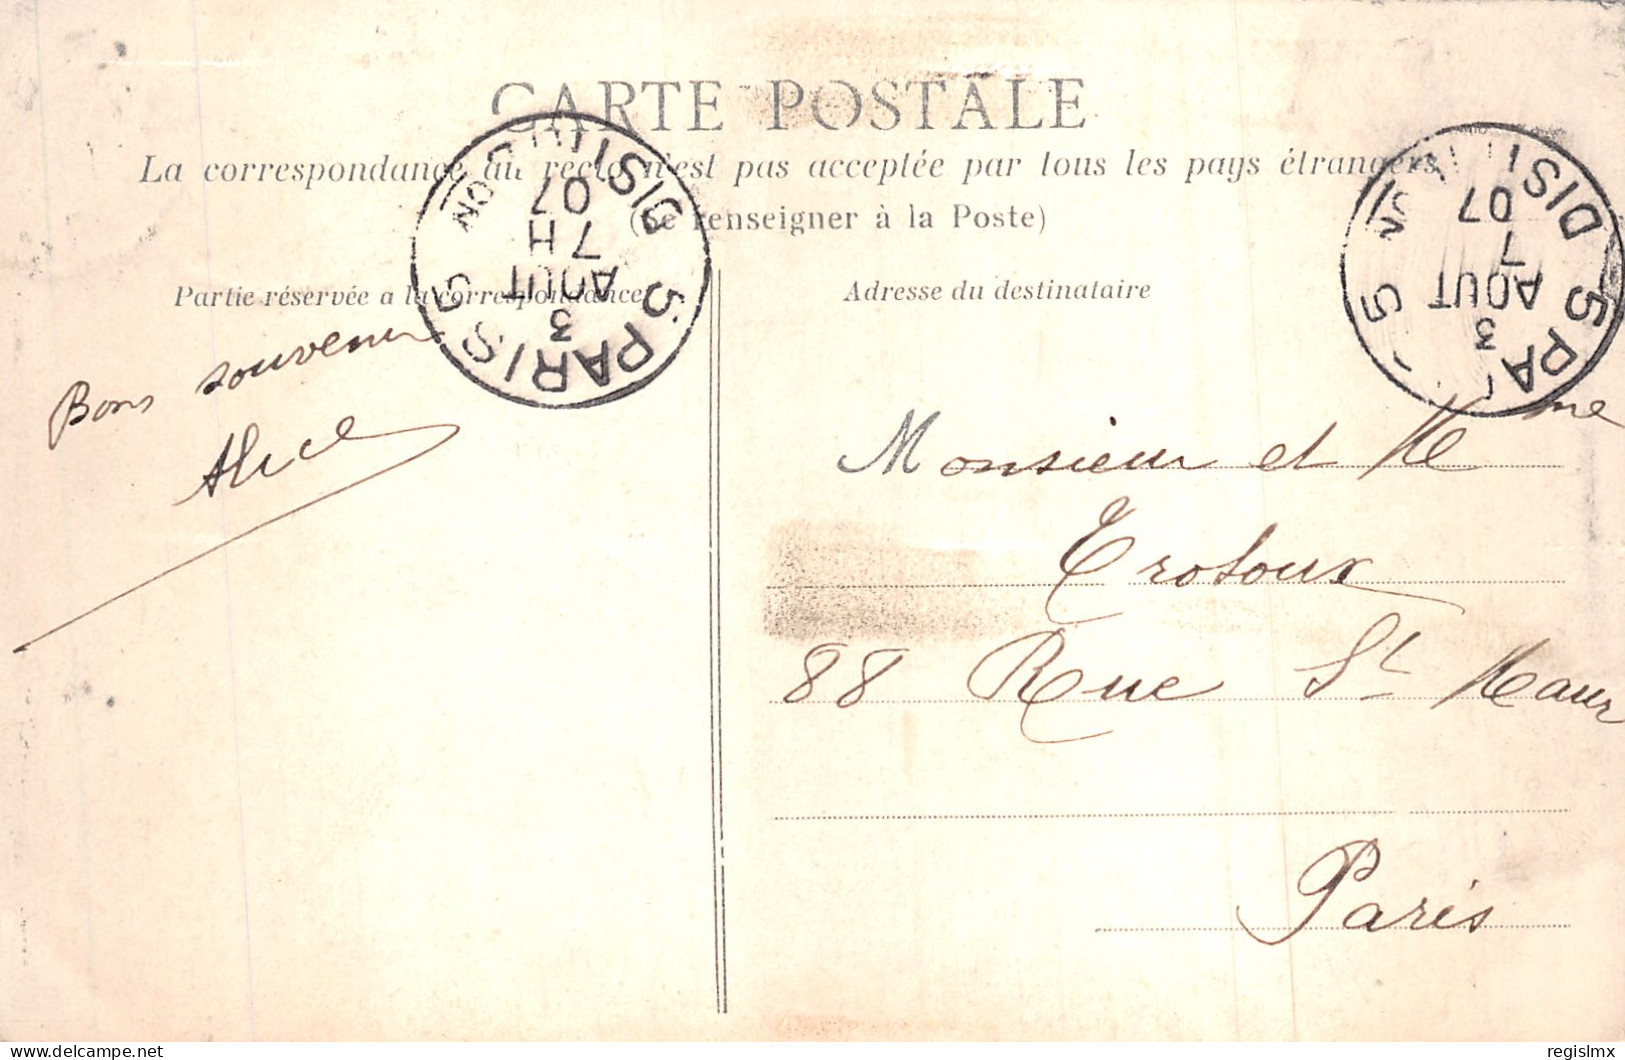 CARTE POSTALE
La correspondance au recto n'est pas acceptée par tous les pays étrangers
(Se renseigner à la Poste)
Partie réservée a la correspondance
Adresse du destinataire
PARIS 5 DISTRIBUTION
3
AOUT
7 H
07
5 PA
DISTRI
3
AOUT
7
07
Bons souvenirs
Alice
Monsieur et Mme
Trotoux
88 Rue St Maur
Paris
regislmx